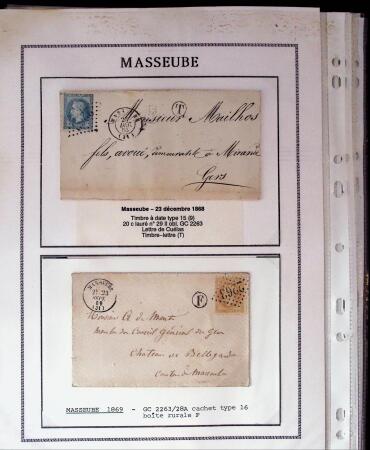 MASSEUBE
T
Monsieur Mailhos
fils, avoué, à Mirande
Gers
Masseube – 23 décembre 1868
Timbre à date type 15 (9)
20 c lauré n° 29 II obl. GC 2263
Lettre de Cuélas
Timbre-lettre (T)
MASSEUBE
F
2263
Monsieur de
Membre du Conseil Général du Gers
Château de Bellegarde
MASSEUBE 1869 - GC 2263/28A cachet type 16
boîte rurale F